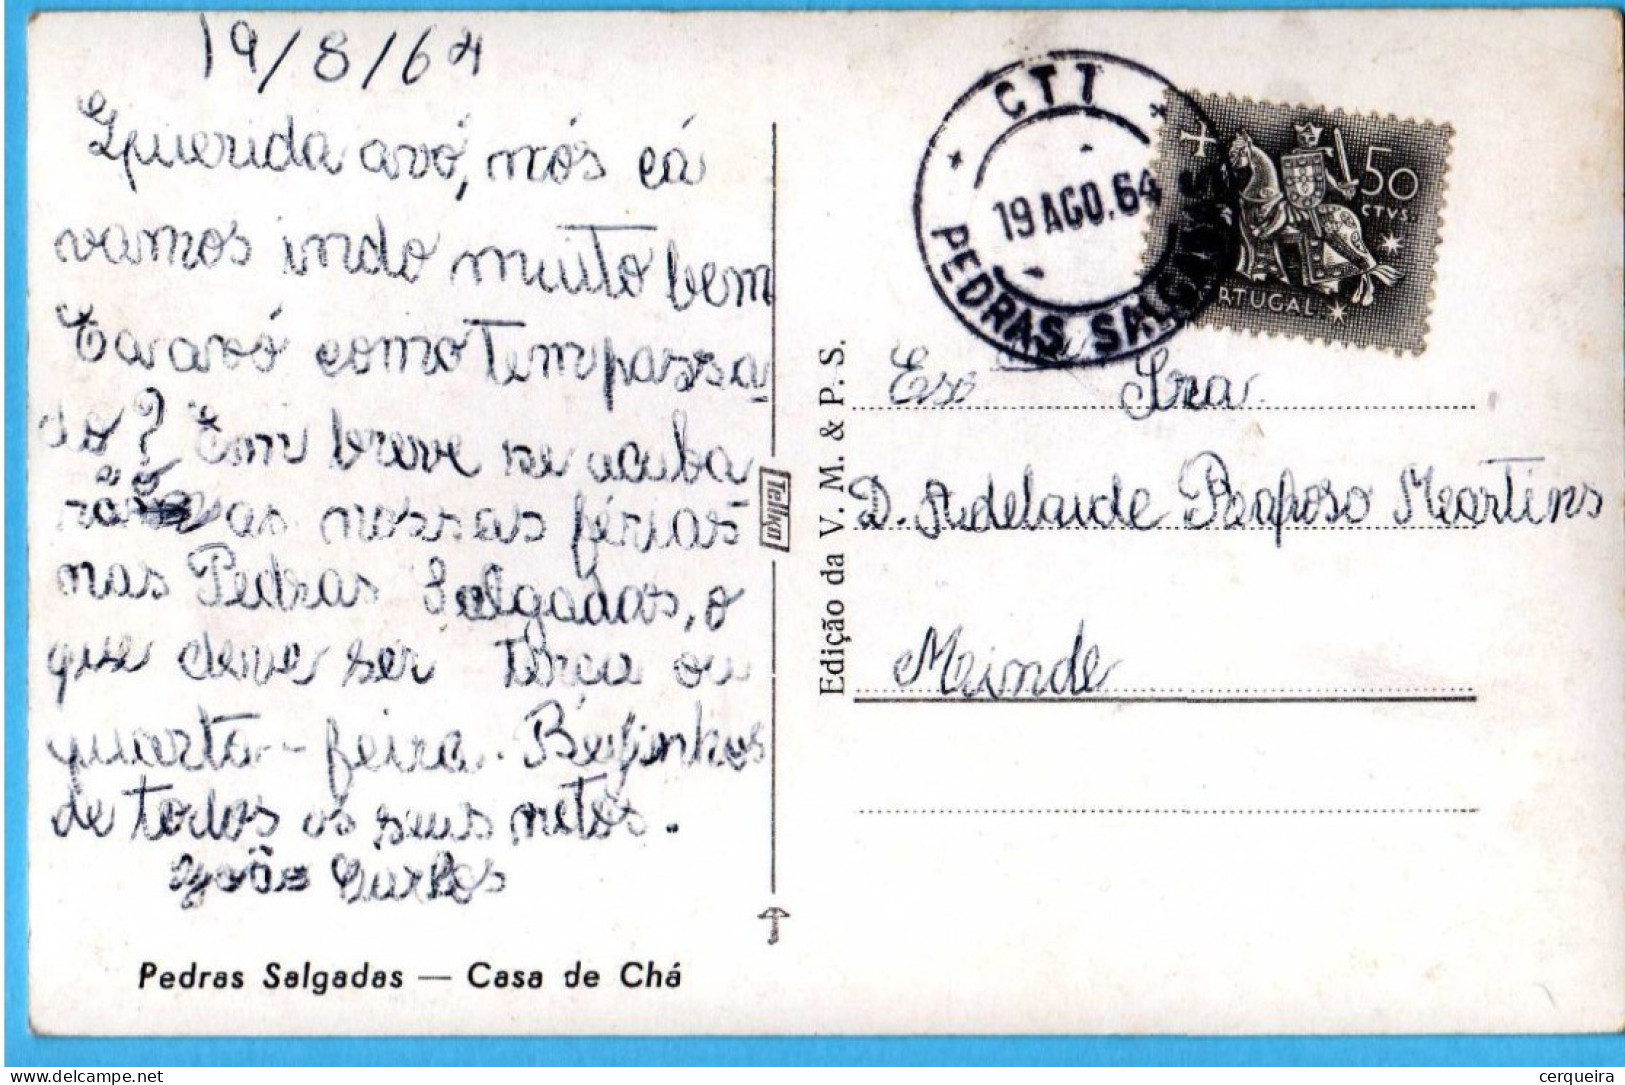 19/8/64
Querida avó, nós cá
vamos indo muito bem
E a avó como tem passa
do? Em breve se acaba
rão as nossas férias
nas Pedras Salgadas, o
que deve ser terça ou
quarta-feira. Beijinhos
de todos os seus netos.
João Carlos
Pedras Salgadas — Casa de Chá
Tellko
Edição da V. M. & P. S.
CTT
19 AGO. 64
PEDRAS SALGADAS
50
CTVS.
PORTUGAL
Exa Sra.
D. Adelaide Martins
Minde
cerqueira
2024-05-04 09:44:52 UTC